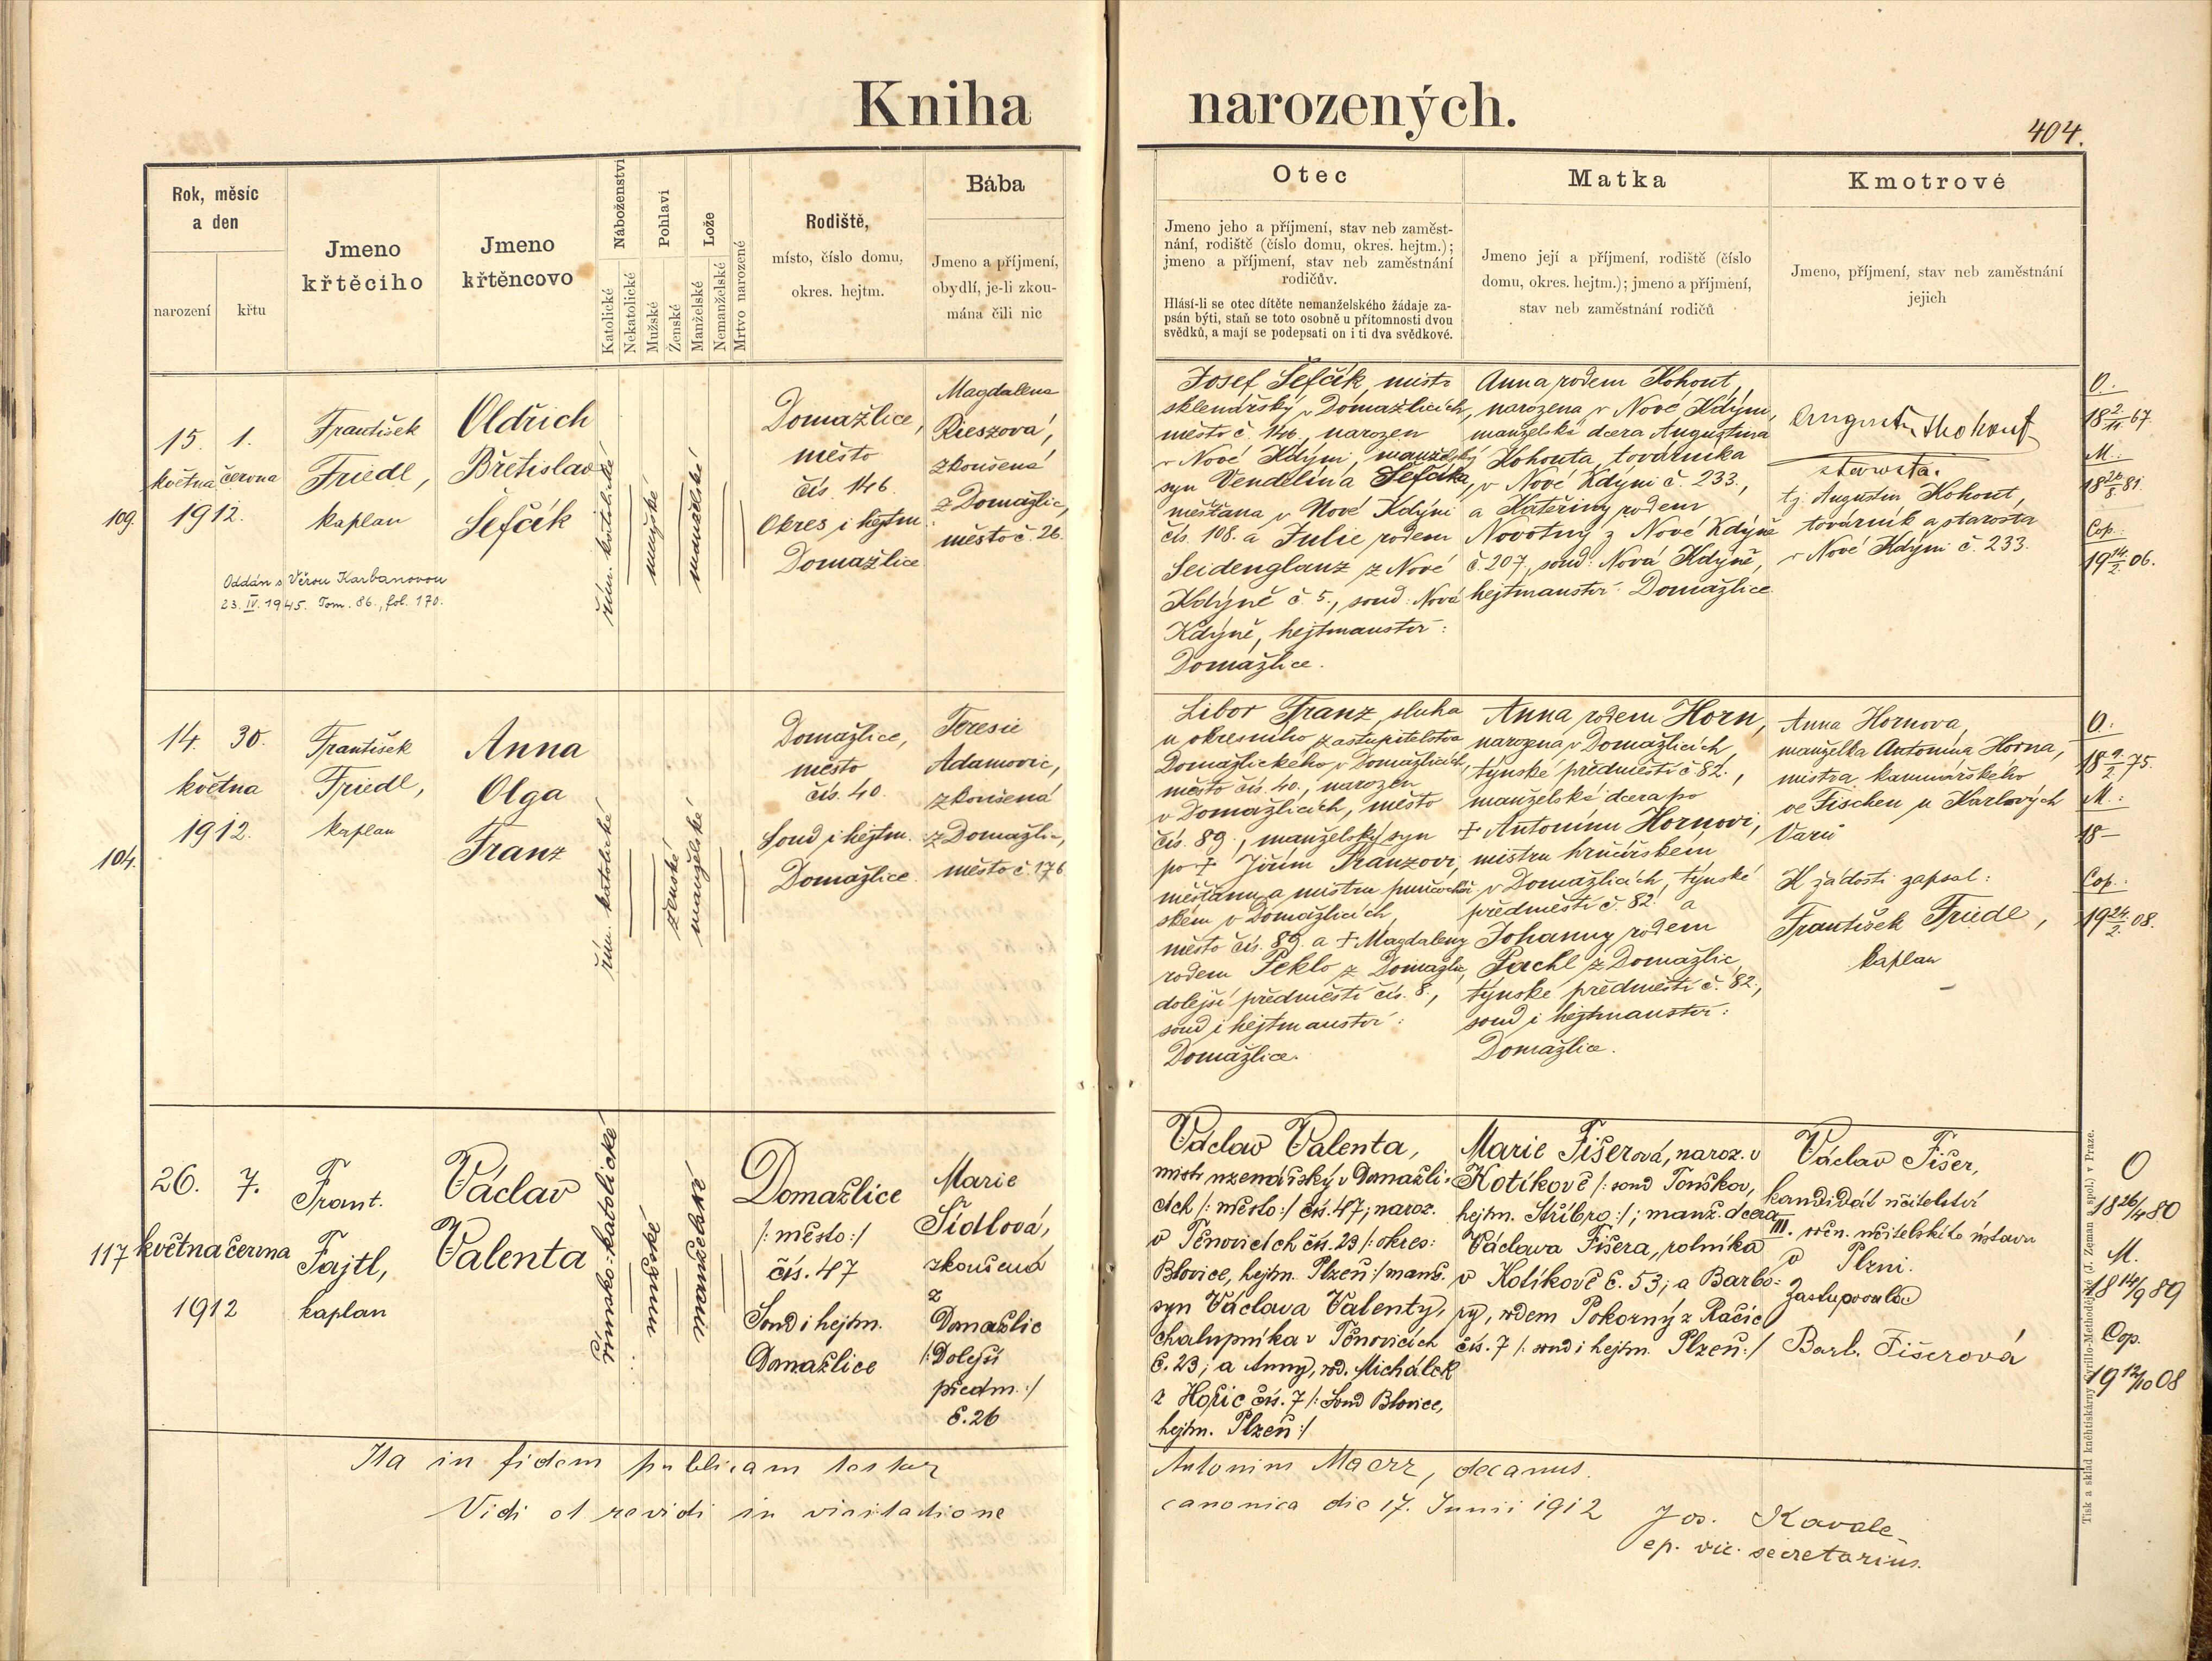 Kniha narozených.
404.
Rok, měsíc
a den
narození
křtu
Jmeno
křtěcího
Jmeno
křtěncovo
Náboženství
Katolické
Nekatolické
Pohlaví
Mužské
Ženské
Lože
Manželské
Nemanželské
Mrtvo narozené
Rodiště,
místo, číslo domu,
okres. hejtm.
Bába
Jmeno a příjmení,
obydlí, je-li zkou-
mána čili nic
Otec
Jmeno jeho a příjmení, stav neb zaměst-
nání, rodiště (číslo domu, okres. hejtm.);
jmeno a příjmení, stav neb zaměstnání
rodičův.
Hlásí-li se otec dítěte nemanželského žádaje za-
psán býti, staň se toto osobně u přítomnosti dvou
svědků, a mají se podepsati on i ti dva svědkové.
Matka
Jmeno její a příjmení, rodiště (číslo
domu, okres. hejtm.); jmeno a příjmení,
stav neb zaměstnání rodičů
Kmotrové
Jmeno, příjmení, stav neb zaměstnání
jejich
109.
15. 1.
května června
1912.
František
Friedl,
kaplan
Oldřich
Břetislav
Šefčík
Oddán s Věrou Karbanovou
23. IV. 1945. Tom. 86., fol. 170.
řím. katolické
mužské
manželské
Domažlice,
město
čís. 146.
Okres i hejtm.
Domažlice
Magdalena
Rieszová,
zkoušená
z Domažlic,
město č. 26.
Josef Šefčík, mistr
sklenářský v Domažlicích,
město č. 146, narozen
v Nové Kdýni, manželský
syn Vendelína Šefčíka,
měšťana v Nové Kdýni
čís. 108. a Julie rodem
Seidenglanz z Nové
Kdýně č. 5., soud: Nová
Kdýně, hejtmanství:
Domažlice.
Anna rodem Kohout,
narozena v Nové Kdýni,
manželská dcera Augustina
Kohouta, továrníka
v Nové Kdýni č. 233.,
a Kateřiny rodem
Novotný z Nové Kdýně
č. 207, soud: Nová Kdýně,
hejtmanství: Domažlice
Augustin Kohout
starosta.
tj. Augustin Kohout,
továrník a starosta
v Nové Kdýni č. 233.
O.
18 2/11 67.
M.
18 26/8 81.
Cop.:
19 14/2 06.
104.
14. 30.
května
1912.
František
Friedl,
kaplan
Anna
Olga
Franz
řím. katolické
ženské
manželské
Domažlice,
město
čís. 40.
Soud i hejtm.
Domažlice.
Teresie
Adamovic,
zkoušená
z Domažlic,
město č. 176
Libor Franz, sluha
u okresního zastupitelstva
Domažlického v Domažlicích,
město čís. 40., narozen
v Domažlicích, město
čís. 89., manželský syn
po † Jiřím Franzovi,
měšťanu a mistru punčochář-
ském v Domažlicích,
město čís. 89. a † Magdaleny
rodem Peklo z Domažlic,
dolejší předměstí čís. 8.,
soud i hejtmanství:
Domažlice.
Anna rodem Horn,
narozená v Domažlicích,
týnské předměstí č. 82.,
manželská dcera po
† Antonínu Hornovi,
mistru hrnčířském
v Domažlicích, týnské
předměstí č. 82. a
Johanny rodem
Pachl z Domažlic
týnské předměstí č. 82.,
soud i hejtmanství:
Domažlice.
Anna Hornova,
manželka Antonína Horna,
mistra kamnářského
ve Fischen u Karlových
Varů
K žádosti zapsal:
František Friedl,
kaplan
O.
18 9/2 75.
M.:
18—
Cop.:
19 24/2 08.
117
26. 7.
května června
1912
Frant.
Fajtl,
kaplan
Václav
Valenta
římsko-katolické
mužské
manželské
Domažlice
/: město :/
čís. 47
Soud i hejtm.
Domažlice
Marie
Šídlová,
zkoušená
z
Domažlic
/: Dolejší
předm. :/
č. 26
Václav Valenta,
mistr uzenářský v Domažli-
cích /: město :/ čís. 47; naroz.
v Těnovicích čís. 23 /: okres:
Blovice, hejtm. Plzeň :/ manž.
syn Václava Valenty,
chalupníka v Těnovicích
č. 23; a Anny, rod. Michálek
z Hořic čís. 7 /: Soud Blovice,
hejtm. Plzeň :/
Marie Fišerová, naroz. v
Kotíkově /: soud Touškov,
hejtm. Stříbro :/; manž. dcera
Václava Fišera, rolníka
v Kotíkově č. 53; a Barbo-
ry, rodem Pokorný z Račic
čís. 7 /: soud i hejtm. Plzeň :/
Václav Fišer,
kandidát učitelství
III. roč. učitelského ústavu
v Plzni.
Zastupovala
Barb. Fišerová
O
18 26/4 80
M.
18 14/9 89
Cop.
19 12/10 08
Ita in fidem publicam testor Antonius Maerz, decanus.
Vidi et revidi in visitatione canonica die 17. Junii 1912
Jos. Kavale
ep. vic. secretarius.
Tisk a sklad knihtiskárny Cyrillo-Methodějské (J. Zeman a spol.) v Praze.